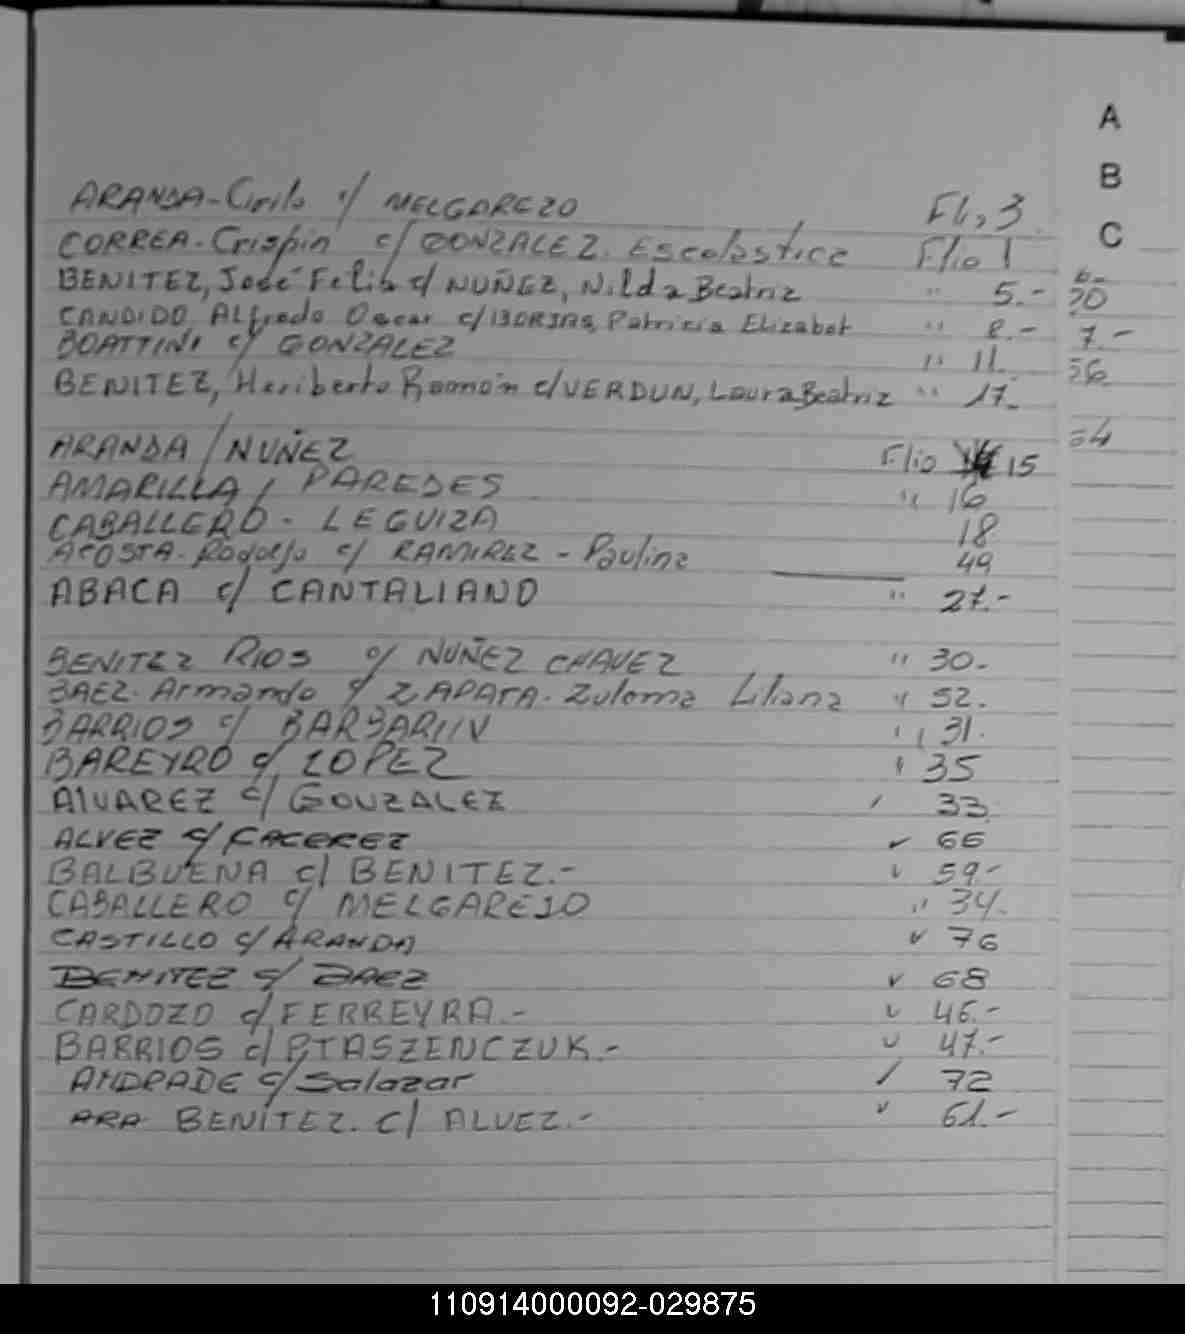 A
B
C
ARANDA-Cirilo c/ MELGAREZO Fl, 3
CORREA-Crispin c/ GONZALEZ. Escolastica Flio 1
BENITEZ, José Felix c/ NUÑEZ, Nilda Beatriz " 5.-
CANDIDO Alfredo Oscar c/ BORJAS, Patricia Elizabet " 8.-
BOATTINI c/ GONZALEZ " 11.
BENITEZ, Heriberto Ramón c/ VERDUN, Laura Beatriz " 17.-
ARANDA / NUÑEZ Flio 15
AMARILLA / PAREDES " 16
CABALLERO - LEGUIZA 18
ACOSTA-Rodolfo c/ RAMIREZ - Paulina 49
ABACA c/ CANTALIANO " 27.-
BENITEZ RIOS c/ NUÑEZ CHAVEZ " 30.-
BAEZ-Armando c/ ZAPATA-Zuloma Liliana " 52.
BARRIOS c/ " 31.
BAREYRO c/ LOPEZ " 35
ALVAREZ c/ GONZALEZ 33
ALVEZ c/ 66
BALBUENA c/ BENITEZ.- 59.-
CABALLERO c/ MELGAREJO " 34.
CASTILLO c/ ARANDA 76
BENITEZ c/ BAEZ 68
CARDOZO c/ FERREYRA.- 46.-
BARRIOS c/ PTASZENCZUK.- 47.-
ANDRADE c/ Salazar 72
ARA BENÍTEZ. c/ ALVEZ.- 61.-
7.-
110914000092-029875